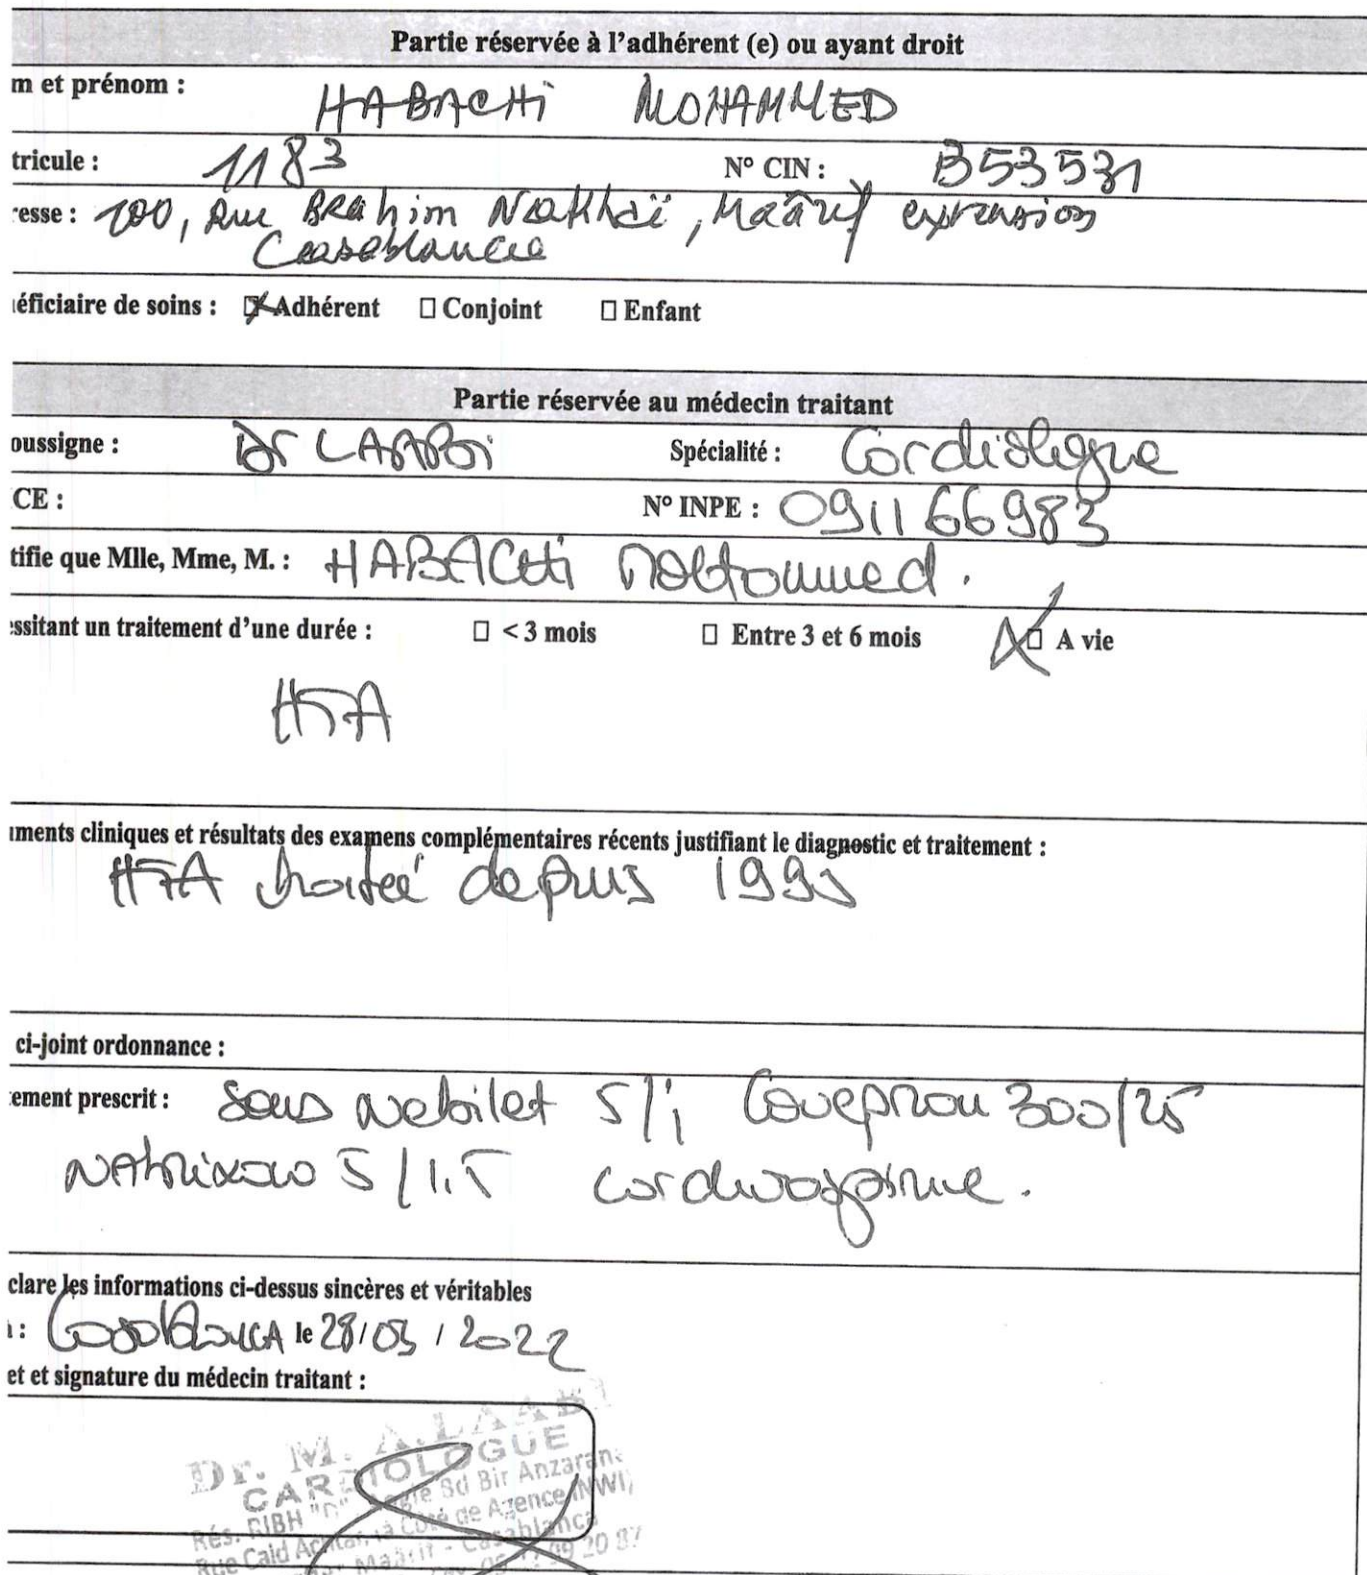 Partie réservée à l'adhérent (e) ou ayant droit
m et prénom : HABACHi MOHAMMED
tricule : 1183 N° CIN : B53531
esse : 200, Rue Brahim Nakhaï, Maârif expansion
Casablanca
éficiaire de soins : Adhérent Conjoint Enfant
Partie réservée au médecin traitant
oussigne : Dr LAABi Spécialité : Cardiologue
CE : N° INPE : 091166983
tifie que Mlle, Mme, M. : HABACHi Mohammed.
ssitant un traitement d'une durée : < 3 mois Entre 3 et 6 mois A vie
HTA
ments cliniques et résultats des examens complémentaires récents justifiant le diagnostic et traitement :
HTA traitée depuis 1995
ci-joint ordonnance :
ement prescrit : Sous Nebilet 5/j Coveprou 300/25
NAtrixam 5/1.5 cardioaspirine.
clare les informations ci-dessus sincères et véritables
: CasablancA le 28/03/2022
et et signature du médecin traitant :
Dr. M. A.LAABI
CARDIOLOGUE
Rés. RIBH "D" Bd Bir Anzaran
Rue Caid Achtar, à Côté de Agence (NWI)
Maârif - Casablanca
09 20 87